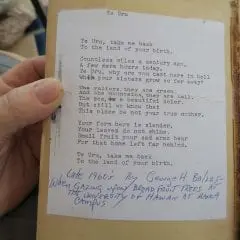 To Uru
To Uru, take me back
To the land of your birth.
Countless miles a century ago,
A few more hours today.
To Uru, why are you cast here in hell
When your sisters grow so far away?
The valleys, they are green
and the mountains, they are tall.
The sea, a beautiful color.
But still we know that
This place is not your true mother.
Your form here is slender,
Your leaves do not shine.
Small fruit your sad arms bear
For that home left far behind.
To Uru, take me back
to the land of your birth.
Late 1960's By George H Balazs-
When gazing upon breadfruit trees at
the University of Hawaii at Manoa
Campus